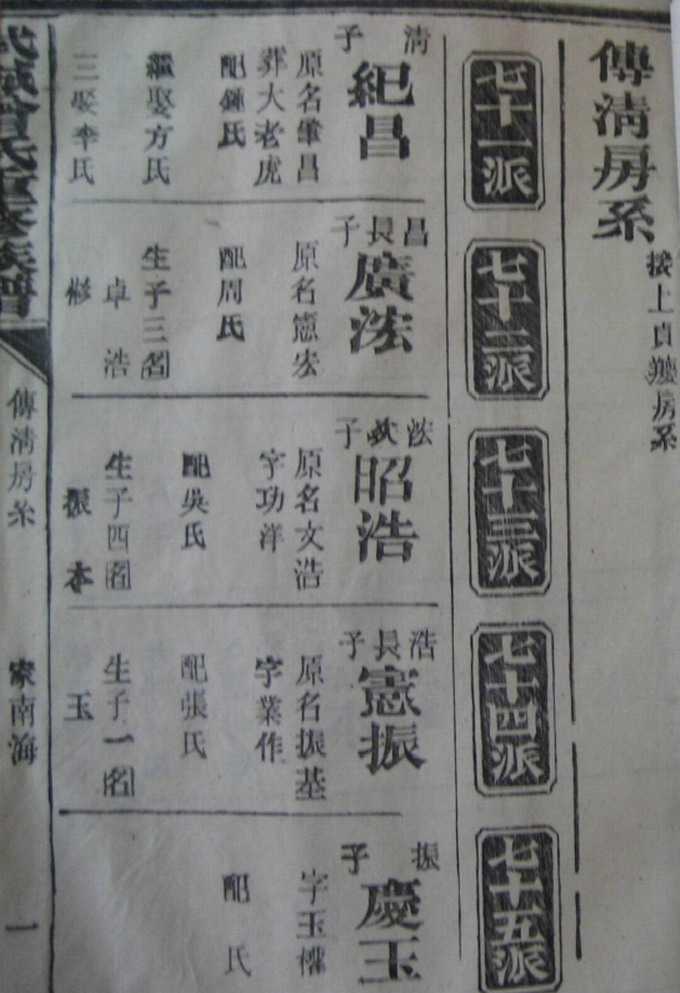 傳淸房系
接上貞房系
七十一派
淸子
紀昌
原名肇昌
葬大老虎
配鍾氏
繼娶方氏
三娶李氏
七十二派
昌長子
廣浤
原名憲宏
配周氏
生子三名
卓浩
七十三派
浤次子
昭浩
原名文浩
字功洋
配吳氏
生子四名
振本
七十四派
浩長子
憲振
原名振基
字業作
配張氏
生子一名
玉
七十五派
振子
慶玉
字玉
配氏
曾氏重修族譜
傳淸房系
家南海
一